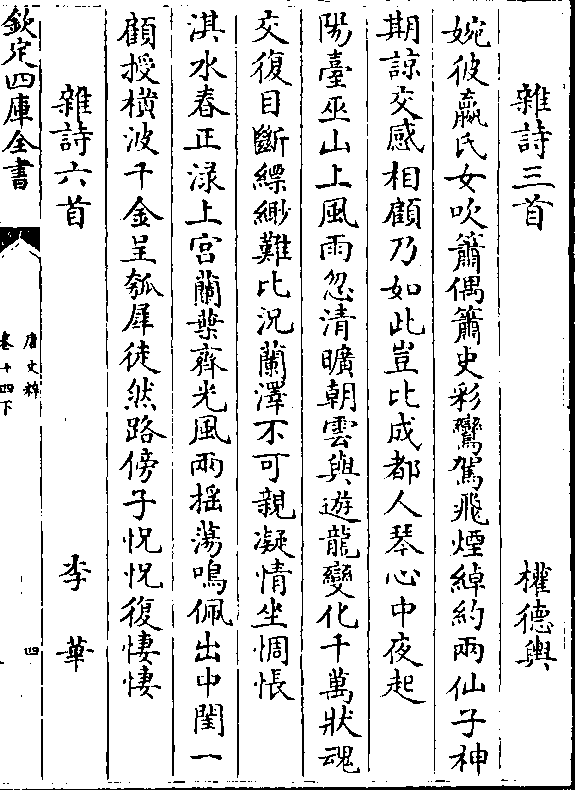 雜詩三首　權德輿
婉彼嬴氏女吹簫偶簫史彩鸞駕飛煙綽約兩仙子神
期諒交感相顧乃如此豈比成都人琴心中夜起
陽臺巫山上風雨忽清曠朝雲與遊龍變化千萬狀魂
交復目斷縹緲難比況蘭澤不可親凝情坐惆悵
淇水春正渌上宮蘭葉齊光風兩揺蕩鳴佩出中閨一
顧授橫波千金呈瓠犀徒然路傍子怳怳復悽悽
雜詩六首　李華
欽定四庫全書
唐文粹
卷十四下
四